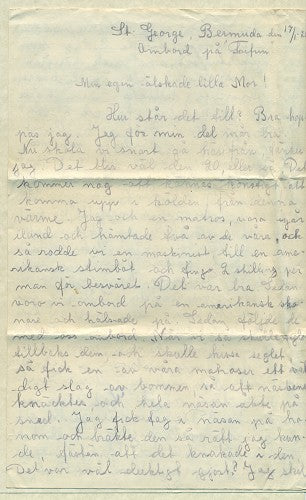 St. George, Bermuda den 17/1-2
Ombord på "Taifun"
Min egen älskade lilla Mor!
Hur står det till? Bra hop
pas jag. Jag för min del mår bra.
Ni skola vi snart gå här från
jag. Det blir väl den 20, eller
kommer nog att kännas konstigt att
komma upp i kölden från denna
värme. Jag och en matros, voro i
land och hämtade två av de våra, och
så rodde vi en maskinist till en ame-
rikansk stimbåt och fingo 2 shilling pr
man för besväret. Det var bra. Sedan
voro vi ombord på en amerikansk sko-
nare och hälsade på. Sedan följde de
med oss ombord. När vi så skulle
tillbaks dem, och skulle hissa seglet,
så fick en av våra matroser ett väl-
digt slag av bommen så att näsben
knäcktes och hela näsan satt på
sned. Jag fick tag i näsan på ho-
nom och bräkte den så rätt jag kun
de, fastän att det knakade i den
Det var väl duktigt gjort? Jag